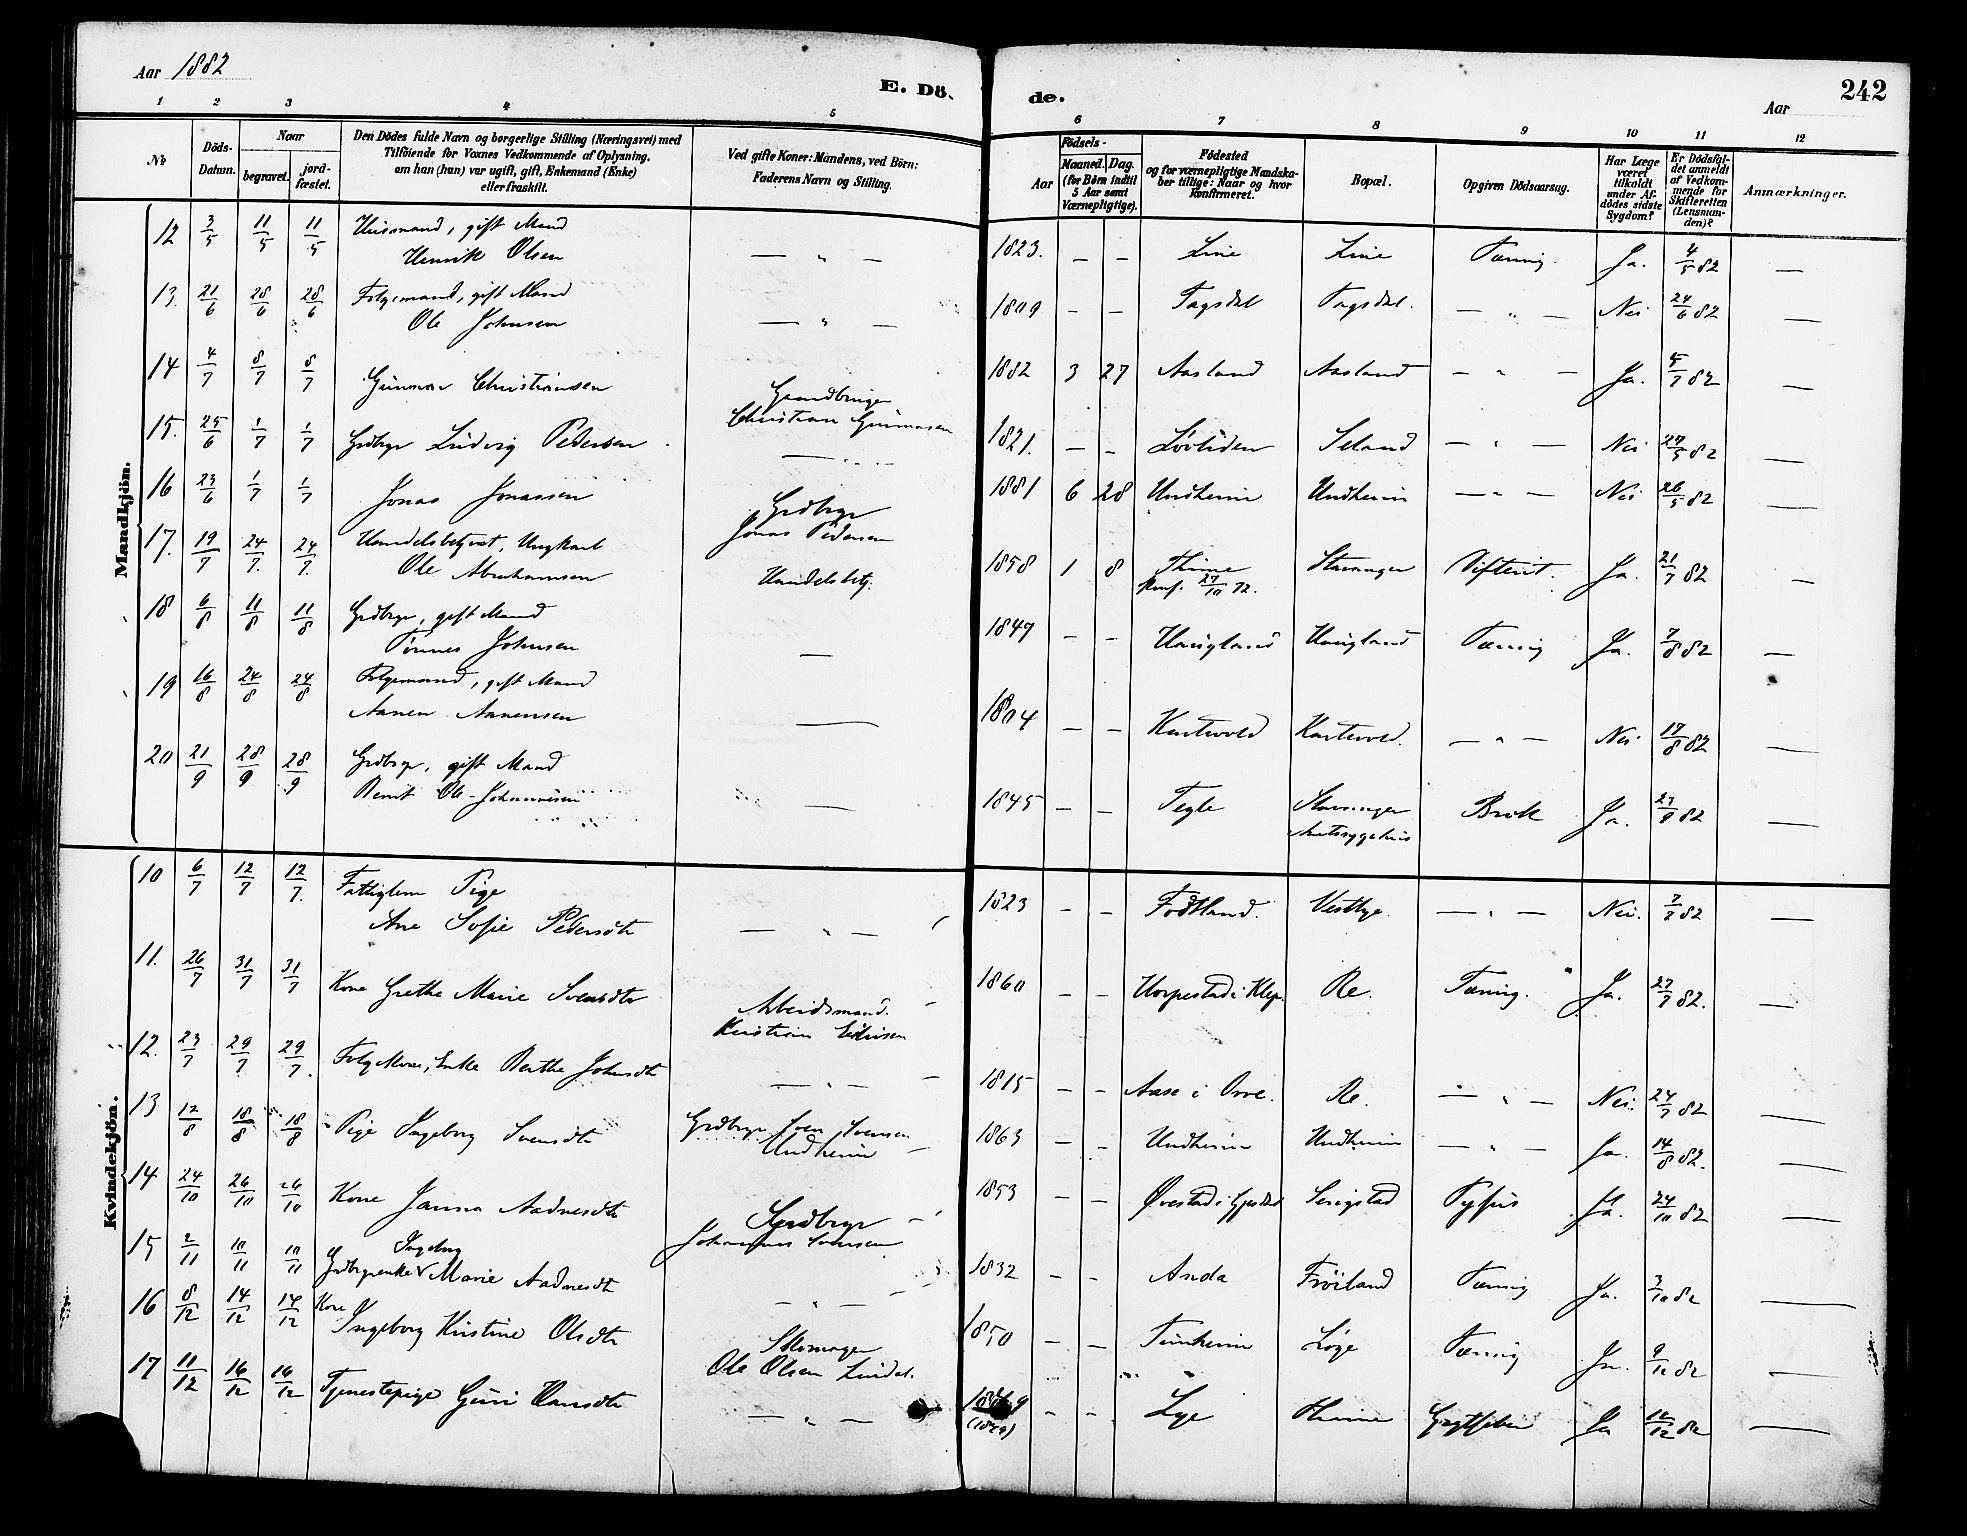 Aar 1882
E. Dö-
de.
Aar
242
1 2 3 4 5 6 7 8 9 10 11 12
No
Döds-Datum.
Naar
begravet.
jord-fæstet.
Den Dödes fulde Navn og borgerlige Stilling (Næringsvei) med
Tilföiende for Voxnes Vedkommende af Oplysning,
om han (hun) var ugift, gift, Enkemand (Enke)
eller fraskilt.
Ved gifte Koner: Mandens, ved Börn:
Faderens Navn og Stilling.
Aar
Födsels-
Maaned. Dag.
(for Börn indtil
5 Aar samt
Værnepligtige).
Födested
og for værnepligtige Mandska-
ber tillige: Naar og hvor
Konfirmeret.
Bopæl.
Opgiven Dödsaarsag.
Har Læge
været
tilkaldt
under Af-
dödes sidste
Sygdom?
Er Dödsfal-
det anmeldt
af Vedkom-
mende for
Skifteretten
(Lensman-
den)?
Anmærkninger.
Mandkjön.
12 3/5 11/5 11/5 Huusmand, gift Mand
Henrik Olsen — " — 1823. — — Line Line Tæring. Ja. 4/5 82 —
13. 21/6 28/6 28/6 Folgemand, gift Mand
Ole Johnsen — " — 1809 — — Tagsdal Tagsdal. — " — Nei 24/6 82 —
14 4/7 8/7 8/7 Gunnar Christiansen Gaardbruger
Christian Gunnarsen 1882 3 27 Aasland Aasland — " — Ja. 5/7 82 —
15. 25/6 1/7 1/7 Grdbrgr Ludvig Pedersen — 1821. — — Seland — " — Nei 27/5 82 —
16 23/6 1/7 1/7 Jonas Jonassen Grdbrgr
Jonas Pedersen 1881 6 28 Undheim Undheim — " — Nei 26/5 82 —
17. 19/7 24/7. 24/7. Handelsbetjent, Ungkarl
Ole Abrahamsen Handelsbetj. 1858 1 8 Thime
Konf. 27/10 72. Stavanger Difterit. Ja. 21/7 82 —
18 6/8 11/8 11/8 Grdbrgr, gift Mand
Tönnes Johnsen — 1847 — — Haugland Haugland Tæring Ja. 7/8 82 —
19 16/8 24/8 24/8 Folgemand, gift Mand
Aanen Aanensen — 1804 — — Kartevold Kartevold. — " — Nei 17/8 82 —
20 21/9 28/9 28/9 Grdbrgr, gift Mand
Bernt Ole Johannesen — 1845 — — Tegle Stavanger
Amtssygehus Brok Ja. 23/9 82 —
Kvindekjön.
10 6/7 12/7 12/7. Fattiglem Pige
Ane Sofie Pedersdtr — " — 1823 — — Fodtland. Vestlye. — " — Nei. 7/7 82 —
11. 26/7 31/7 31/7 Kone Grethe Marie Svensdtr Arbeidsmand.
Kristian 1860 — — Horpestad i Klep. Re. Tæring. Ja. 27/7 82. —
12. 23/7 29/7 29/7. Folgekone, Enke Berthe Johnsdtr — " — 1815 — — Aase i Orre. Re. — " — Nei. 24/7 82 —
13 12/8 18/8 18/8 Pige Ingeborg Svensdtr Grdbrgr Sven Svensen
Undheim 1863 — — Undheim Undheim — " — Ja. 14/8 82. —
14 24/10 26/10 26/10 Kone Janna Aadnesdtr Grdbrgr
Johannes Svensen 1853 — — Øvestad i Gjesdal Serigstad Tyfus Ja. 24/10 82 —
15 2/11 10/11 10/11 Grdbrgrenke Ingeborg Marie Aadnesdtr — " — 1832 — — Anda Fröiland Tæring Ja. 3/10 82 —
16 8/12 14/12 14/12 Kone
Ingeborg Kristine Olsdtr Skomager
Ole Olsen Lindal. 1850 — — Tunheim Löge Tæring Ja. 9/12 82 —
17 11/12 16/12 16/12 Tjenestepige Guri Hansdtr — " — — — Lye Thime Ja 12/12 82 —